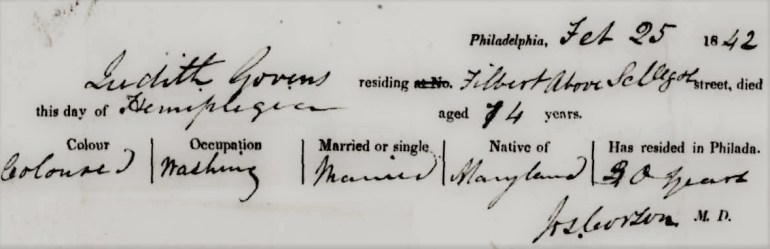 Philadelphia, Feb 25 1842
Judith Govens residing at No. Filbert Above Sch street, died
this day of Hemiplegia aged 74 years.
Colour Occupation Married or single Native of Has resided in Philada.
Coloured Washing Married Maryland 30 years
Jos Corson M. D.